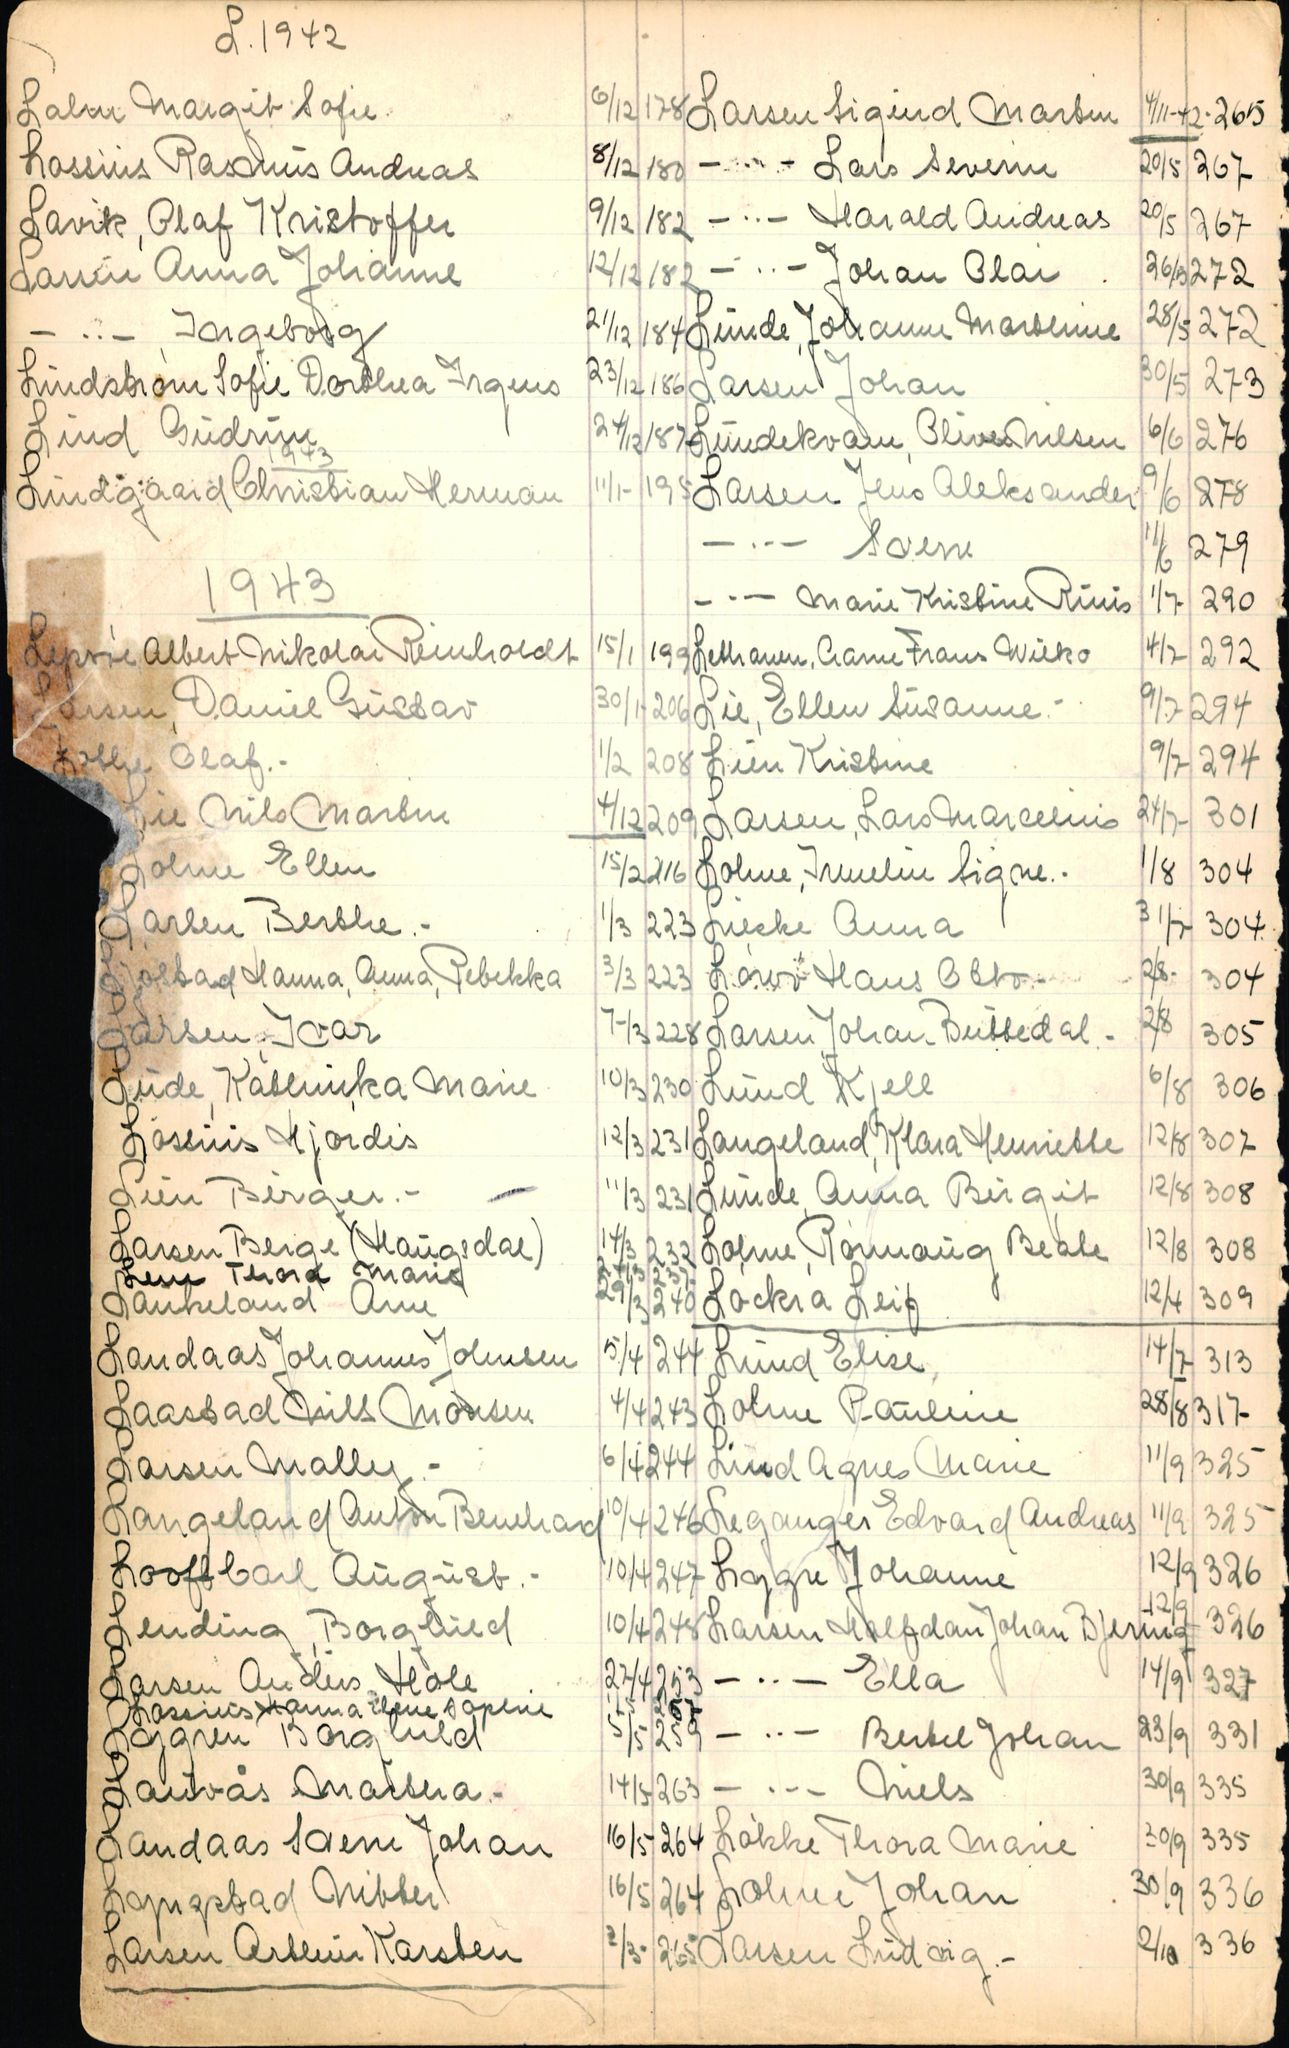 L. 1942
Lalm Margit Sofie 6/12 178
Lossius Rasmus Andreas 8/12 180
Lavik, Olaf Kristoffer 9/12 182
Larsen Anna Johanne 12/12 182
- ·· - Ingeborg 21/12 184
Lindstrøm Sofie Dorthea Irgens 23/12 186
Lind Gudrun 24/12 187
1943
Lindgaard Christian Herman 11/1- 195
1943
Albert Nikolai Reinholdt 15/1 199
Larsen, Daniel Gustav 30/1- 206
Lothe Olaf.- 1/2 208
Lie Nils Martin 4/12 209
Lohne Ellen 15/2 216
Larsen Berthe.- 1/3 223
Hanna, Anna, Rebekka 3/3 223
Larsen, Ivar 7/3 228
Lude, Kathinka Marie 10/3 230
Lossius Hjørdis 12/3 231
Lien Birger.- 11/3 231
Larsen Berge (Haugsdal) 14/3 232
Lem Thora Marie 237
Lankeland Arne 29/3 240
Landaas Johannes Johnsen 5/4 244
Laastad Nils Monsen 4/4 243
Larsen Mally.- 6/4 244
Langeland Anton Bernhard 10/4 246
Looft Carl August.- 10/4 247
Lending, Borghild 10/4 248
Larsen Anders Hole 27/4 253
Lossius Hanna
Lyggren Borghild 5/5 259
Lauvås Marthea.- 14/5 263
Landaas Sverre Johan 16/5 264
Lyngstad Nitter 16/5 264
Larsen Arthur Karsten 2/3- 265
Larsen Sigurd Martin 4/11-42- 265
- ·· - Lars Severin 20/5 267
- ·· - Harald Andreas 20/5 267
- ·· - Johan Olai 272
Lunde, Johanne Marthine 28/5 272
Larsen Johan 30/5 273
Lundekvam, Oliver Nilsen 6/6 276
Larsen Jens Aleksander 9/6 278
- ·· - Sverre 11/6 279
- ·· - Marie Kristine Riiis 1/7- 290
Lethauen, Frans Wilko 4/7 292
Lie, Ellen Susanne.- 9/7 294
Lien Kristine 9/7- 294
Larsen, Lars Marcelius 24/7- 301
Lohne, Irmelin Signe.- 1/8 304
Lieske Anna 31/7 304
Hans Otto.- 2/8- 304
Larsen Johan Buttedal.- 2/8 305
Lund Kjell 6/8 306
Langeland, Klara Henriette 12/8 307
Lunde, Anna Birgit 12/8 308
Lohne, Rønnaug Beate 12/8 308
Lockra Leif 12/4 309
Lund Elise, 14/7 313
Lohne Pauline 28/8 317-
Lind Agnes Marie 11/9 325
Leganger Edvard Andreas 11/9 325
Lygre Johanne 12/9 326
Larsen Halfdan Johan Bjering 12/9 326
- ·· - Ella 14/9 327
- ·· - Bertel Johan 23/9 331
- ·· - Niels 30/9 335
Løkke Thora Marie 30/9 335
Lohne Johan 30/9 336
Larsen Ludvig.- 2/10 336